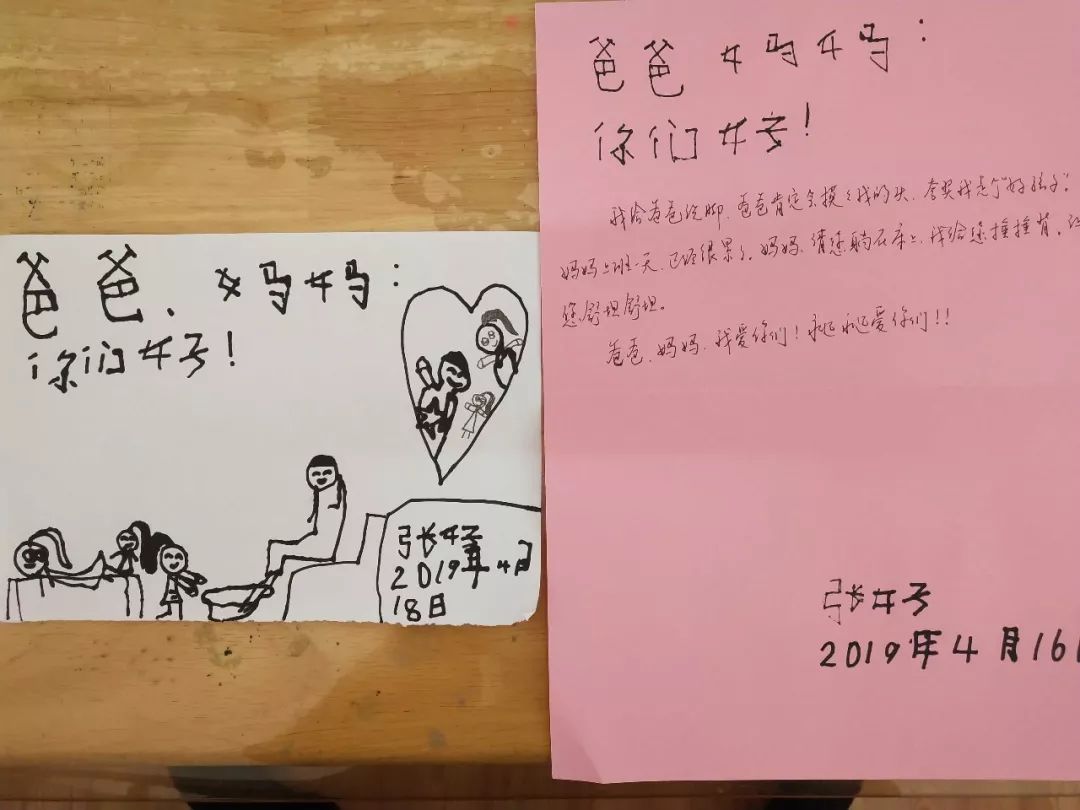 爸爸、妈妈：
你们好！
张好
2019年4月
18日
爸爸妈妈：
你们好！
我给爸爸洗脚，爸爸肯定会摸摸我的头，夸奖我是个“好孩子”。
妈妈上班一天，已经很累了。妈妈，请您躺在床上，我给您捶捶背，让
您舒坦舒坦。
爸爸、妈妈，我爱你们！永远永远爱你们！！
张好
2019年4月16日